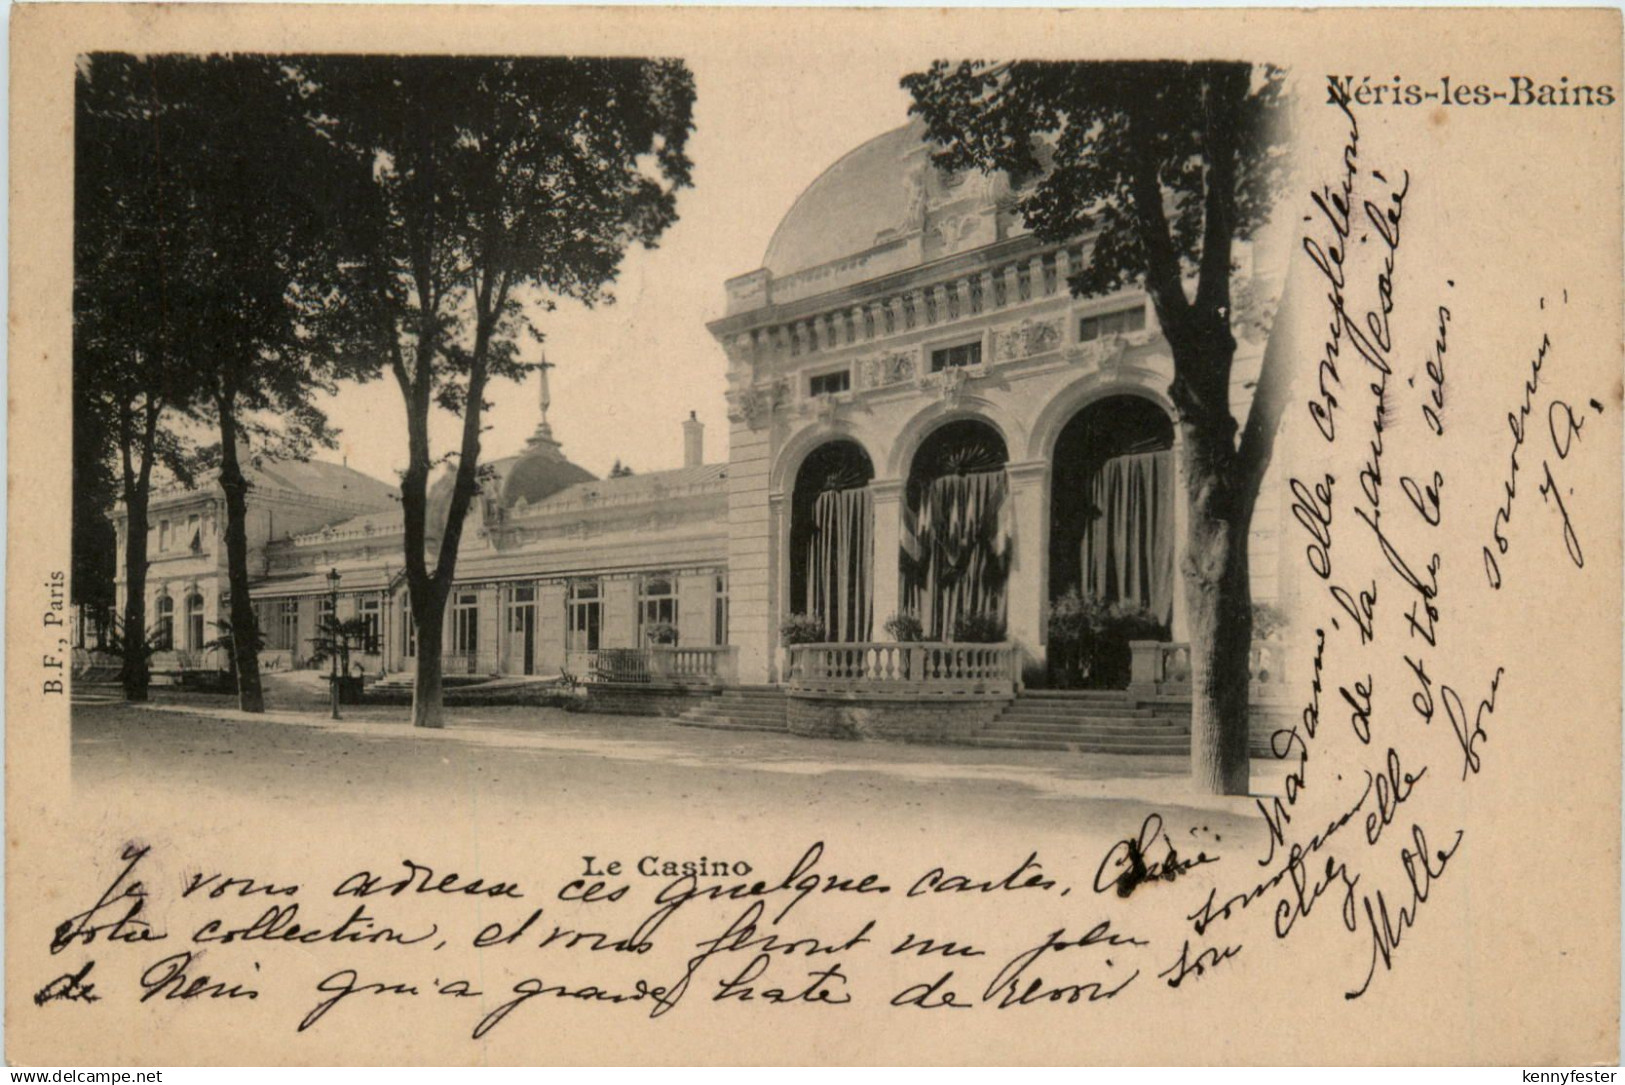 Néris-les-Bains
B.F., Paris
Le Casino
Je vous adresse ces quelques cartes, Chère
Madame, elles complèteront
votre collection, et vous feront un peu
souvenir de la pauvre exilée
de Néris qui a grande hate de revoir
son chez elle et tous les siens.
Mille bons souvenirs
J. A.
www.delcampe.net
kennyfester